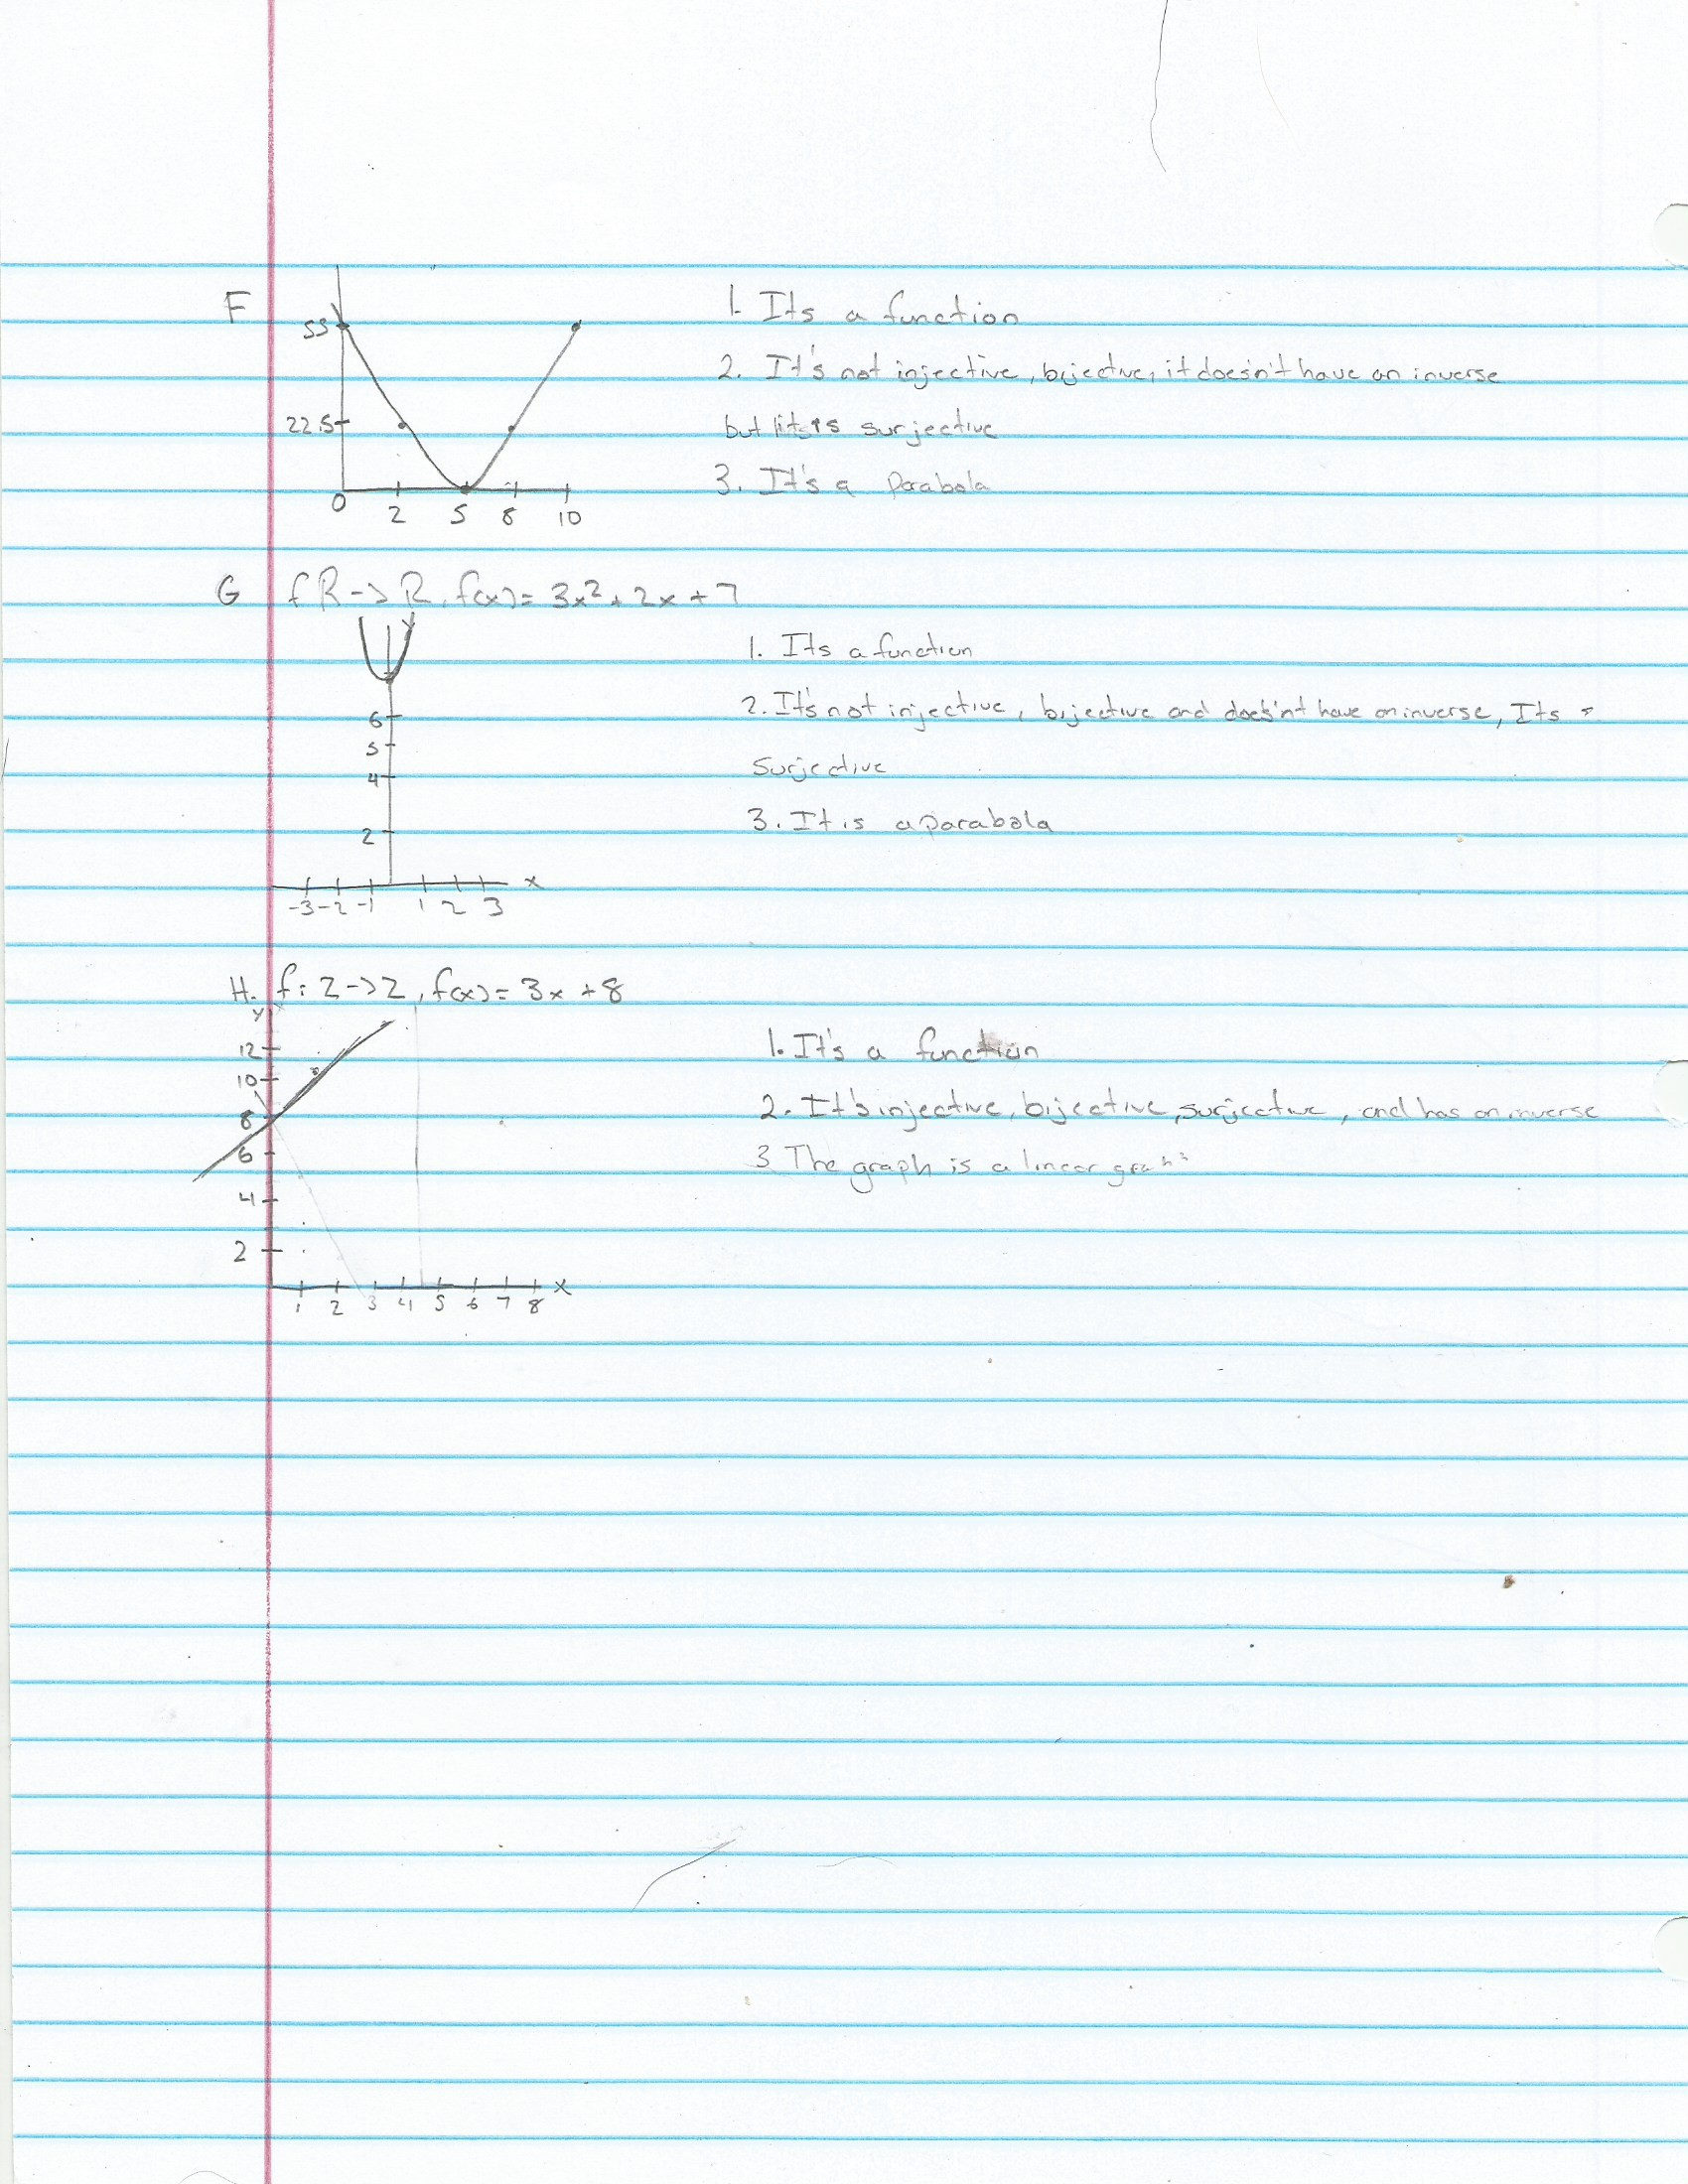 F
55
22.5
0 2 5 8 10
1. Its a function
2. It's not injective, bijective, it doesn't have an inverse
but it is surjective
3. It's a parabola
G f R -> R, f(x) = 3x² + 2x + 7
6
5
4
2
-3 -2 -1 1 2 3 x
1. Its a function
2. It's not injective, bijective and does'nt have an inverse, Its
surjective
3. It is a parabola
H. f: Z -> Z, f(x) = 3x + 8
y
12
10
8
6
4
2
1 2 3 4 5 6 7 8 x
1. It's a function
2. It's injective, bijective, surjective, and has an inverse
3 The graph is a linear graph